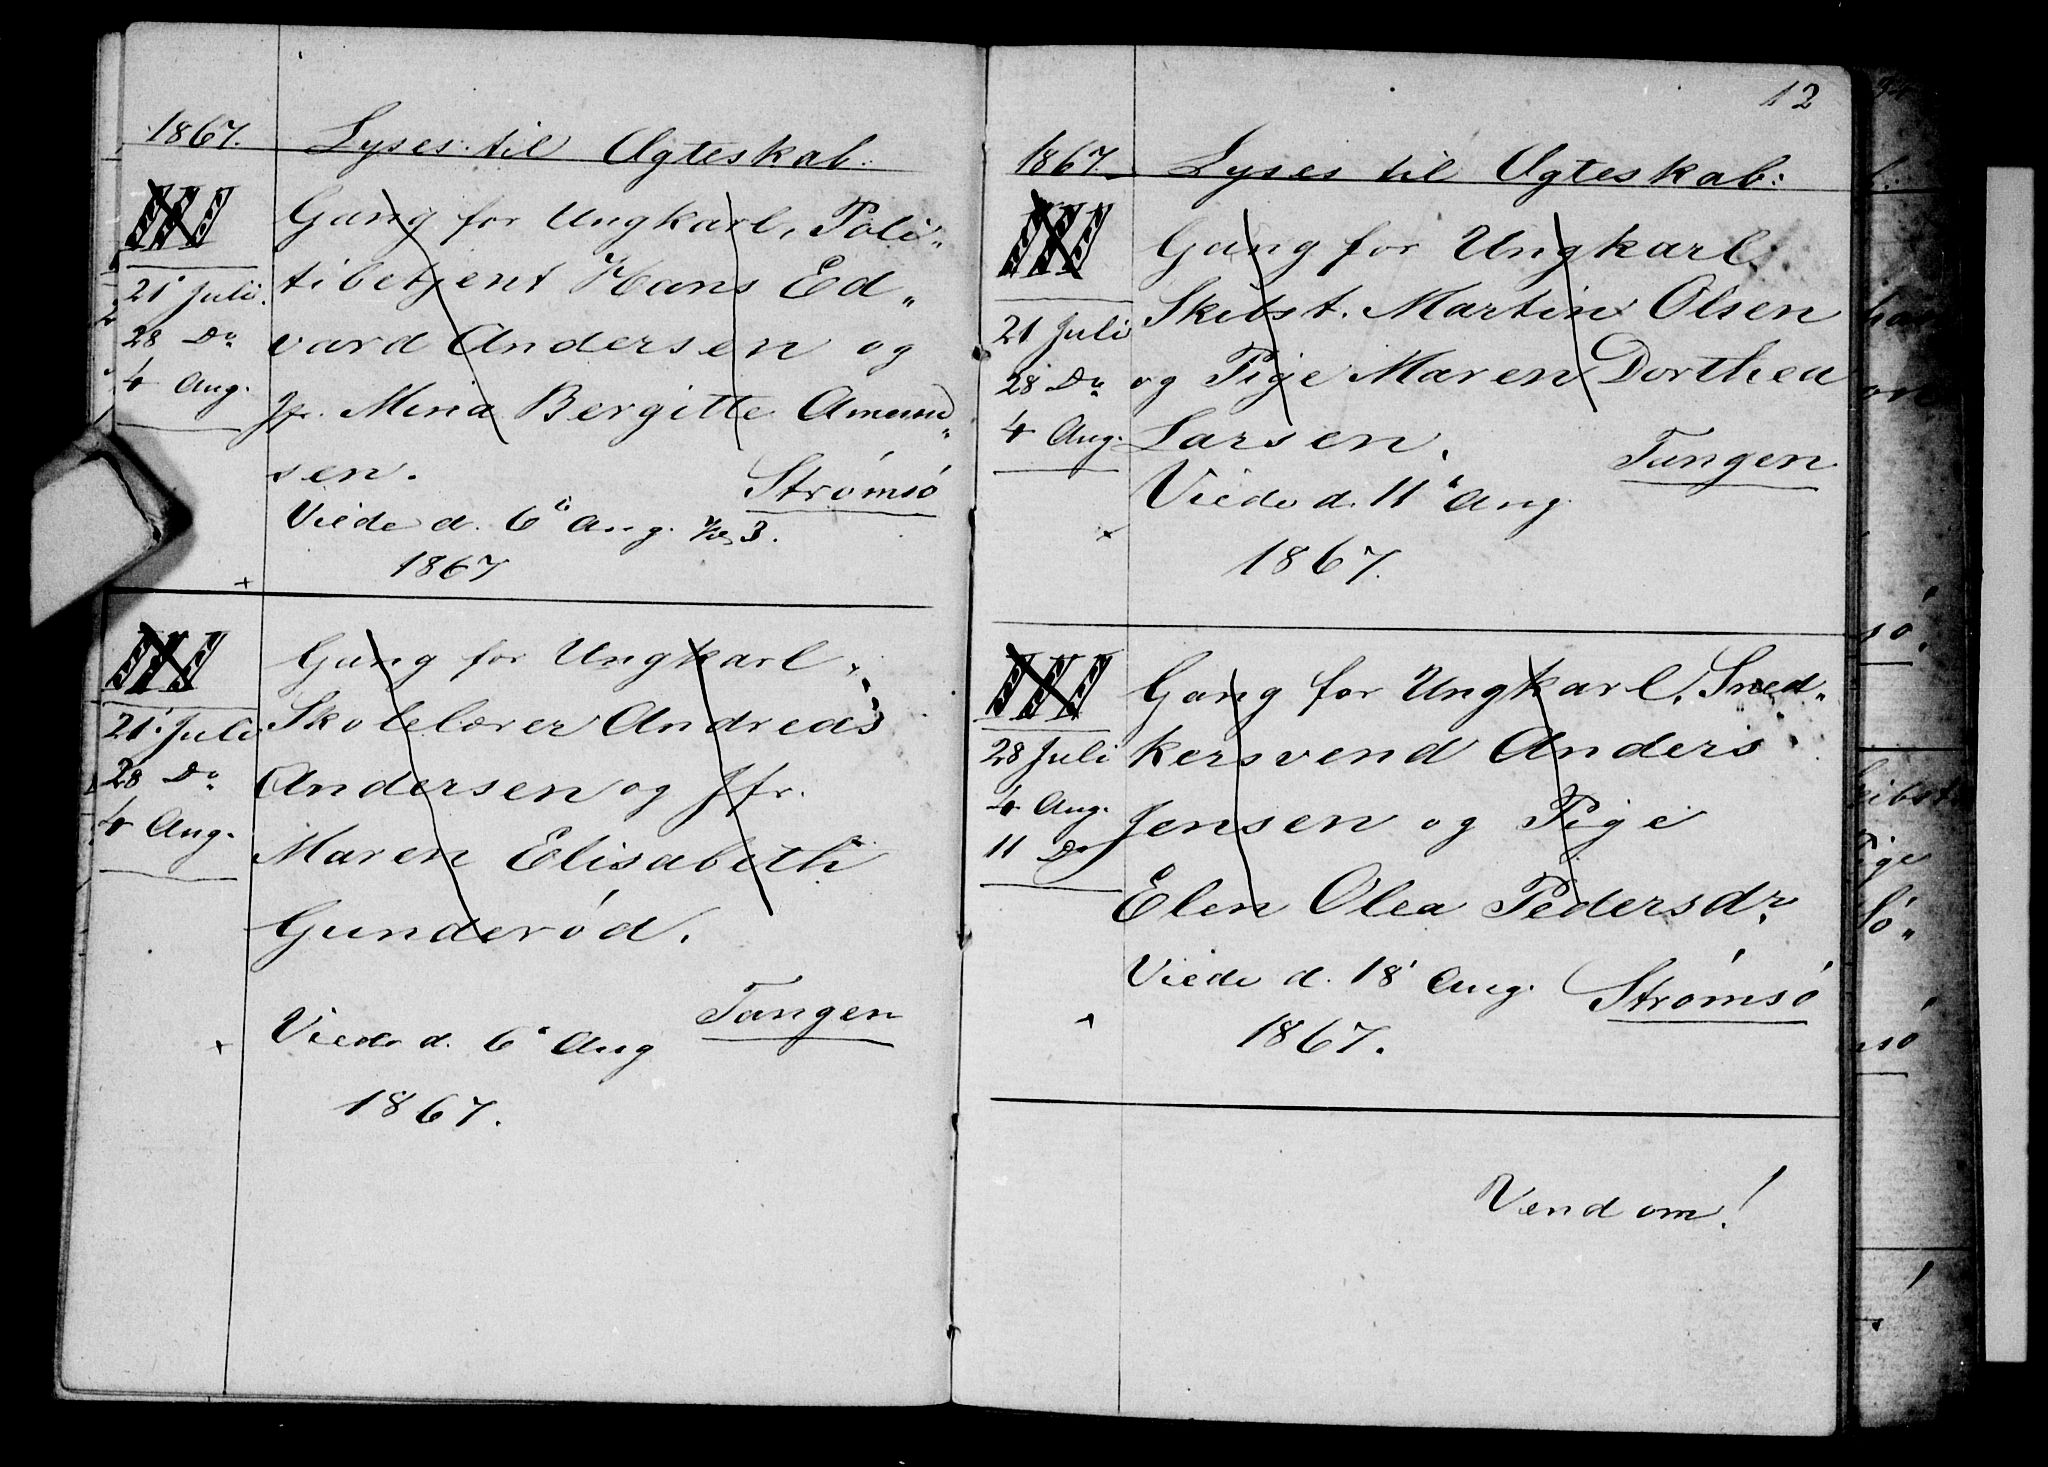 1867. Lyses til Ægteskab:
III Gang for Ungkarl, Poli„
21 Juli. tibetjent Hans Ed„
28 Do vard Andersen og
4 Aug. Jfr. Mina Bergitte Amund„
sen. Strømsö
Viede d. 6 Aug. 3.
1867
III Gang for Ungkarl,
21 Juli Skolelærer Andreas
28 Do Andersen og Jfr.
4 Aug. Maren Elisabeth
Gunderöd.
Tangen
Viede d. 6 Aug
1867.
12
1867. Lyses til Ægteskab:
III Gang for Ungkarl,
21 Juli Skibst. Martin Olsen
28 Do og Pige Maren Dorthea
4 Aug. Larsen.
Tangen
Viede d. 11 Aug.
1867.
III Gang for Ungkarl, Sned„
28 Juli kersvend Anders
4 Aug. Jensen og Pige
11 Do
Elen Olea Pedersdr.
Viede d. 18 Aug. Strømsö
1867.
Vend om!